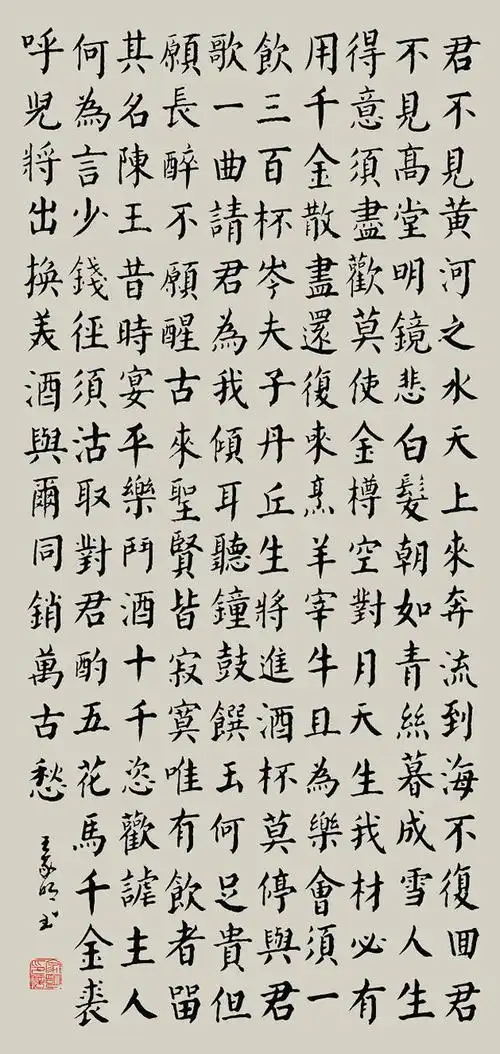 君不見黃河之水天上來奔流到海不復回君
不見髙堂明鏡悲白髮朝如青絲暮成雪人生
得意須盡歡莫使金樽空對月天生我材必有
用千金散盡還復來烹羊宰牛且為樂會須一
飲三百杯岑夫子丹丘生將進酒杯莫停與君
歌一曲請君為我傾耳聽鐘鼓饌玉何足貴但
願長醉不願醒古來聖賢皆寂寞唯有飲者留
其名陳王昔時宴平樂鬥酒十千恣歡謔主人
何為言少錢徑須沽取對君酌五花馬千金裘
呼兒將出換美酒與爾同銷萬古愁
王家明书